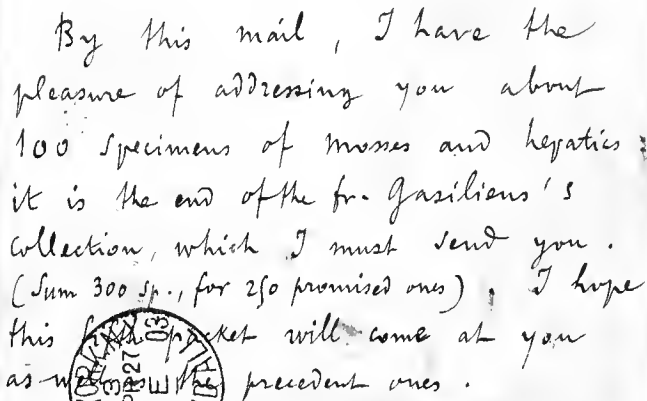 By this mail, I have the
pleasure of addressing you about
100 specimens of mosses and hepatics
it is the end of the fr. Gasiliens's
collection, which I must send you.
(Sum 300 sp., for 250 promised ones). I hope
this packet will come at you
as well as the precedent ones.